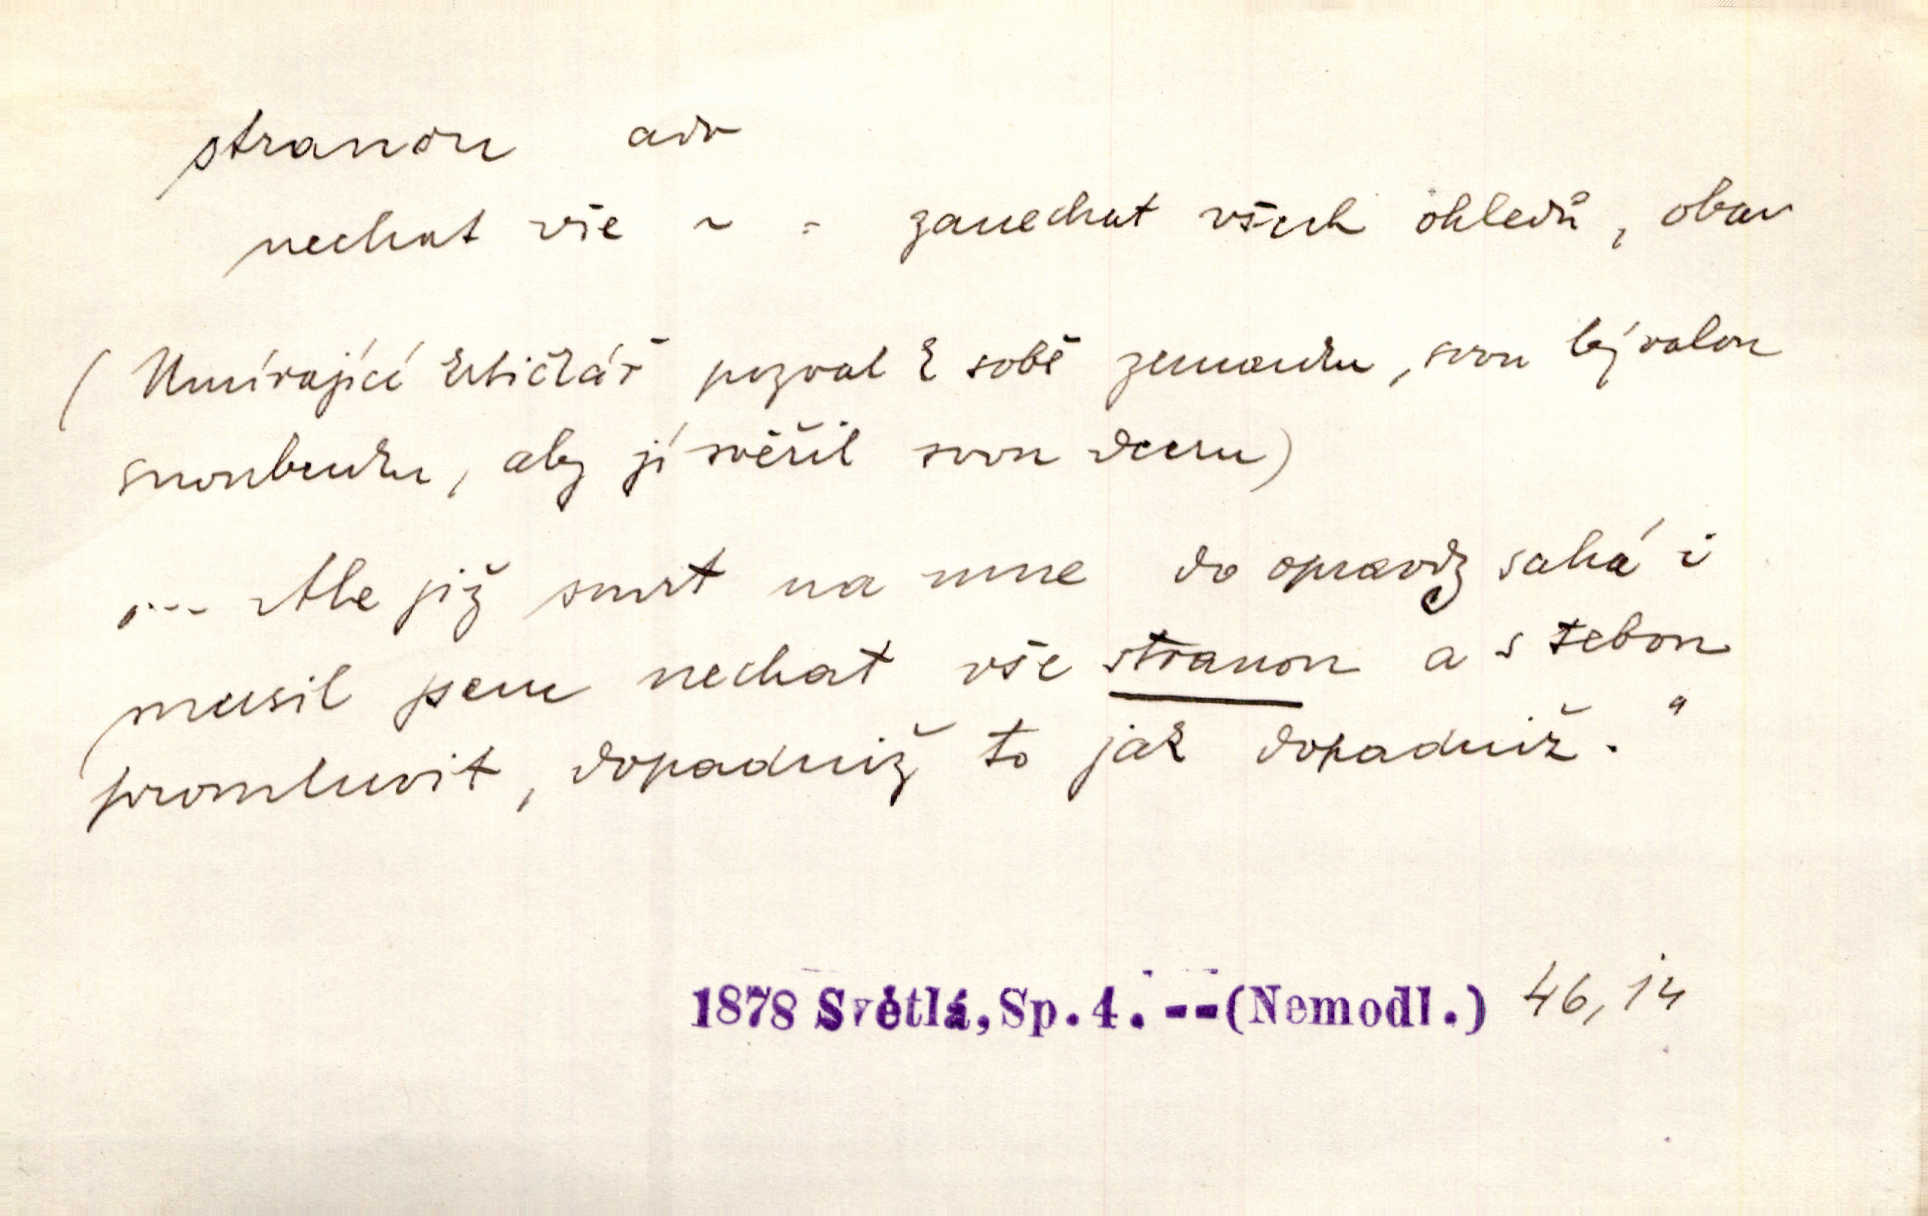 stranou adv
nechat vše ~ = zanechat všech ohledů, obav
(Umírající krbičkář pozval k sobě zemanku, svou bývalou
snoubenku, aby jí svěřil svou dceru)
... Ale již smrt na mne do opravdy sahá i
musil jsem nechat vše stranou a s tebou
promluvit, dopadniž to jak dopadniž."
1878 Světlá, Sp. 4. --(Nemodl.) 46, 14